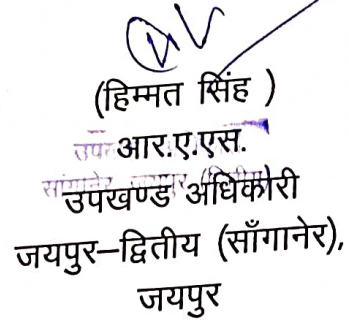 (हिम्मत सिंह )
आर.ए.एस.
उपखण्ड अधिकोरी
जयपुर–द्वितीय (साँगानेर),
जयपुर